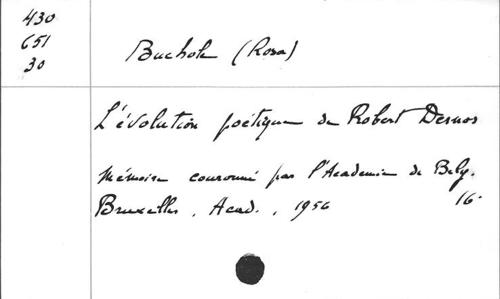 430
651
30
Buchole (Rosa)
L'évolution poétique de Robert Desnos
Mémoire couronné par l'Académie de Belg.
Bruxelles, Acad., 1956 16°